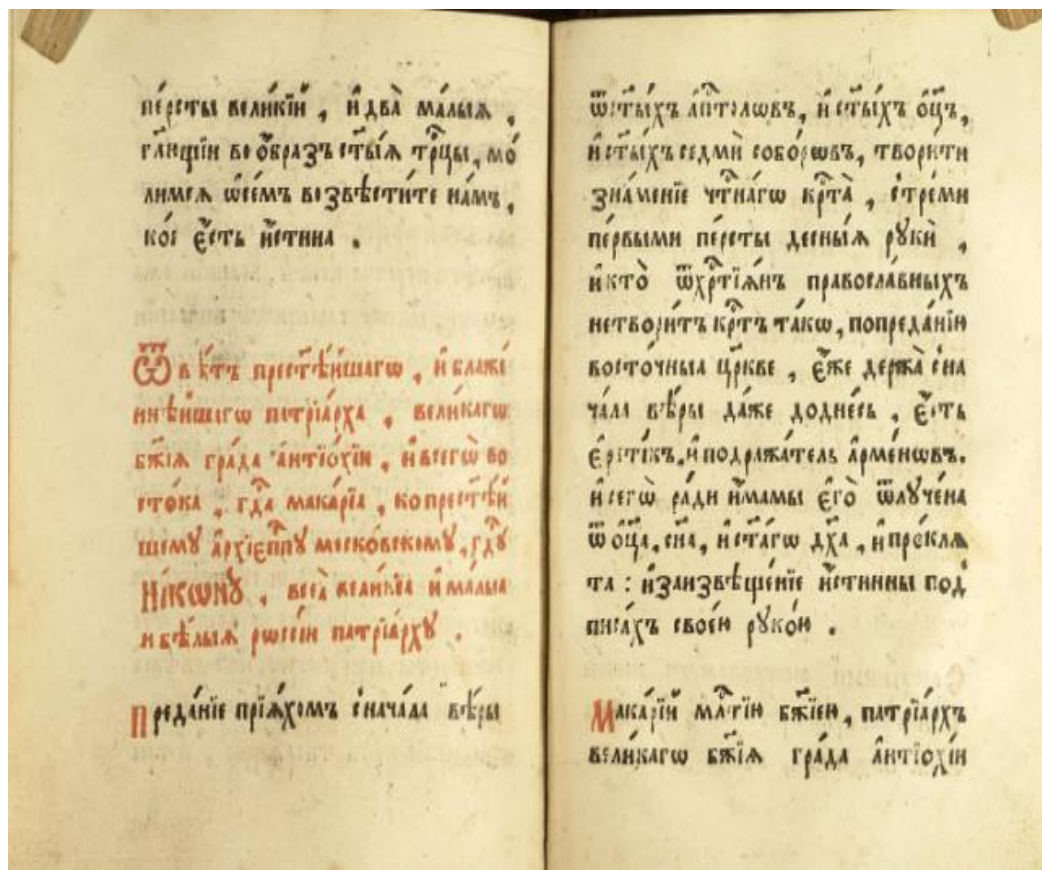 пе́рсты вели́кїй , и҆ два̀ ма́лыѧ ,
гл҃ющїи во ѻ҆́браз̾ ст҃ы́ѧ трⷪ҇цы, мо́
лимсѧ ѡ҆ се́мъ возвѣсти́те на́мъ,
ко́е є҆́сть и҆́стина .
Ѿвѣ́тъ прест҃ѣ́йшагѡ , и҆ блаже́
ннѣ́йшагѡ патрїа́рха , вели́кагѡ
бж҃їѧ гра́да а҆нтїохі́и , и҆ всегѡ̀ во
сто́ка , гдⷭ҇а мака́рїа , ко прест҃ѣ́й
шему а҆рхїєпⷭ҇пу моско́вскому , гдⷭ҇ꙋ
Ни́кѡнꙋ , всеѧ̀ вели́кїа и҆ ма́лыа
и бѣ́лыѧ рѡссі́и патрїа́рхꙋ .
Преда́нїе прїѧ́хомъ с̾нача́ла вѣ́ры
ѿ ст҃ы́хъ а҆пⷭ҇толѡвъ, и҆ ст҃ы́хъ ѻ҆ц҃ъ,
и҆ ст҃ы́хъ седмѝ собо́рѡвъ, твори́ти
зна́менїе чтⷭ҇на́гѡ крⷭ҇та̀ , с̾тре́ми
пе́рвыми пе́рсты десны́ѧ рꙋкѝ ,
и҆ кто̀ ѿ хрⷭ҇тїѧ́нъ правосла́вныхъ
не твори́тъ крⷭ҇тъ та́кѡ, по преда́нїю
восто́чныа цр҃кве , є҆́же держа̀ с̾на
ча́ла вѣ́ры да́же до дне́сь , є҆́сть
є҆рети́къ, и҆ подража́тель а҆рме́нѡвъ.
и҆ сегѡ̀ ра́ди и҆́мамы є҆го̀ ѿлꙋче́на
ѿ ѻ҆ц҃а, сн҃а, и҆ ст҃а́гѡ дх҃а , и҆ про́клѧ
та : и҆ за и҆звѣще́нїе и҆́стинны под̾
писа́хъ свое́ю рꙋко́ю .
Мака́рїй млⷭ҇тїю бж҃їею , патрїа́рхъ
вели́кагѡ бж҃їѧ гра́да а҆нтїохі́и